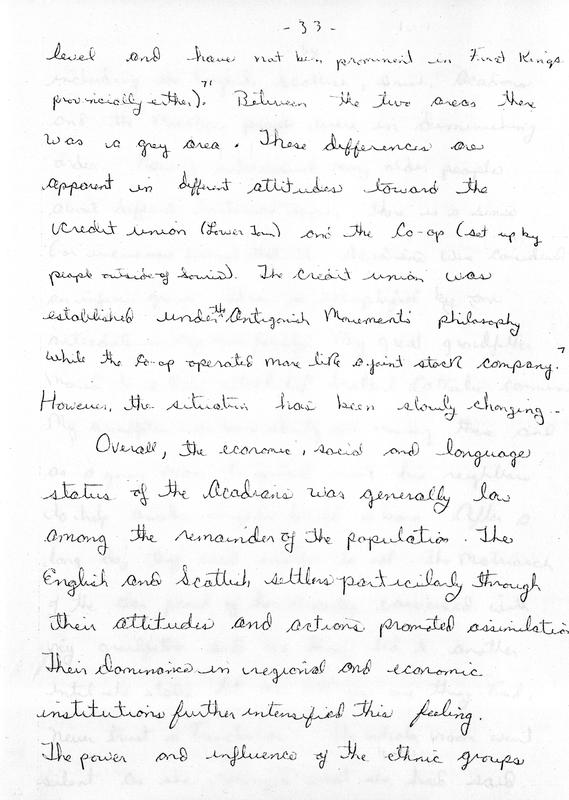 - 33 -
level and have not been prominent in First Kings
provincially either).⁷¹ Between the two areas there
was a grey area. These differences are
apparent in different attitudes toward the
credit union (Lower Town) and the Co-op (set up by
people outside of Souris). The credit union was
established under the Antigonish Movements' philosophy
while the Co-op operated more like a joint stock company.
However, the situation has been slowly changing.
Overall, the economic, social and language
status of the Acadians was generally low
among the remainder of the population. The
English and Scottish settlers particularly through
their attitudes and actions promoted assimilation
Their dominance in regional and economic
institutions further intensified this feeling.
The power and influence of the ethnic groups